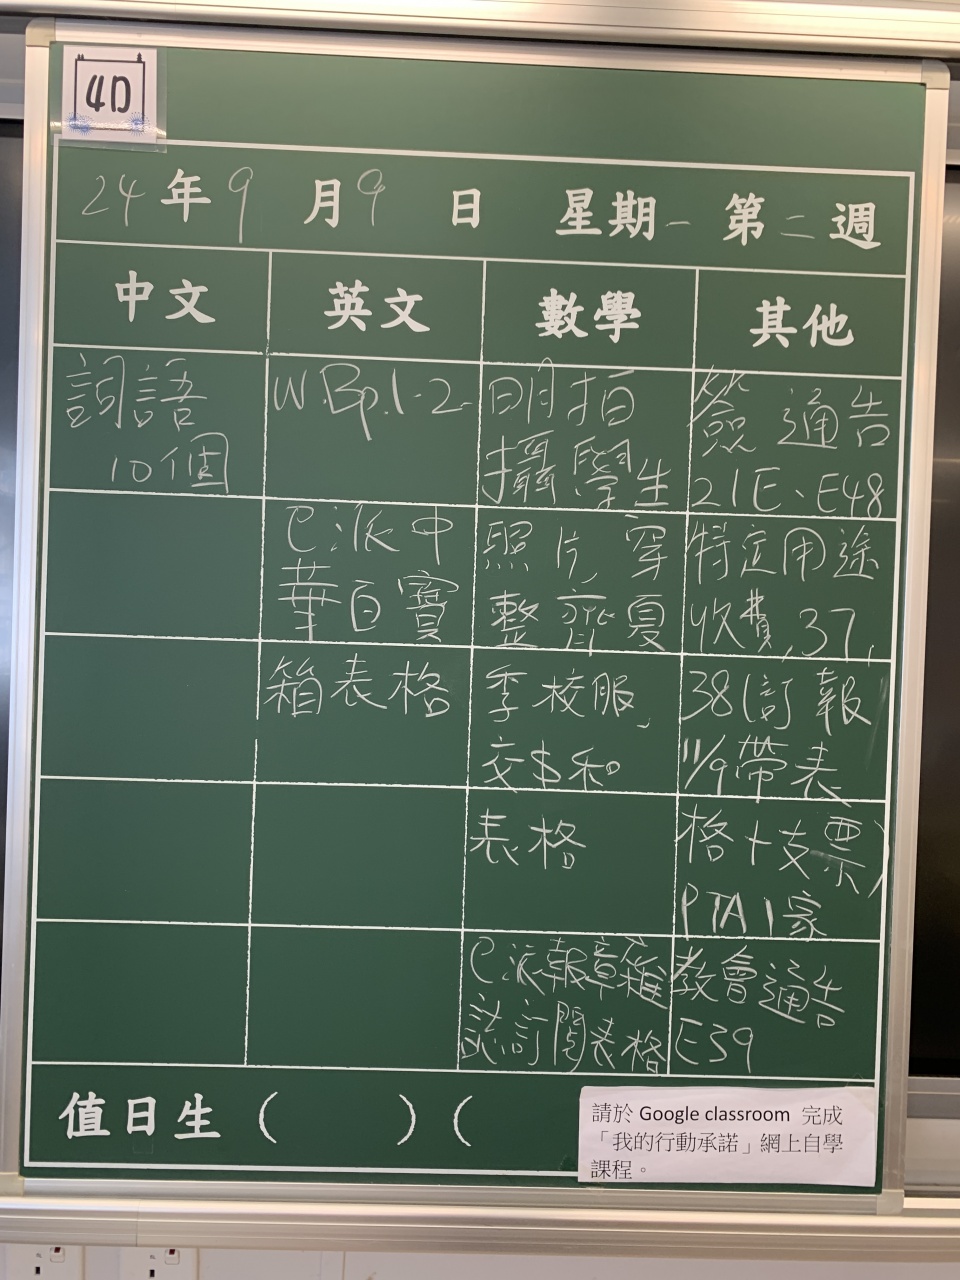 4D
24年9月9日 星期一 第二週
中文
英文
數學
其他
詞語
10個
W.Bp.1-2.
已派中
華百寶
箱表格
明拍
攝學生
照片,穿
整齊夏
季校服,
交$和
表格
已派報章雜
誌訂閱表格
簽通告
21E、E48
特定用途
收費,37,
38(訂報
11/9帶表
格+支票)
PTA1家
教會通告
E39
值日生( )(
請於 Google classroom 完成
「我的行動承諾」網上自學
課程。